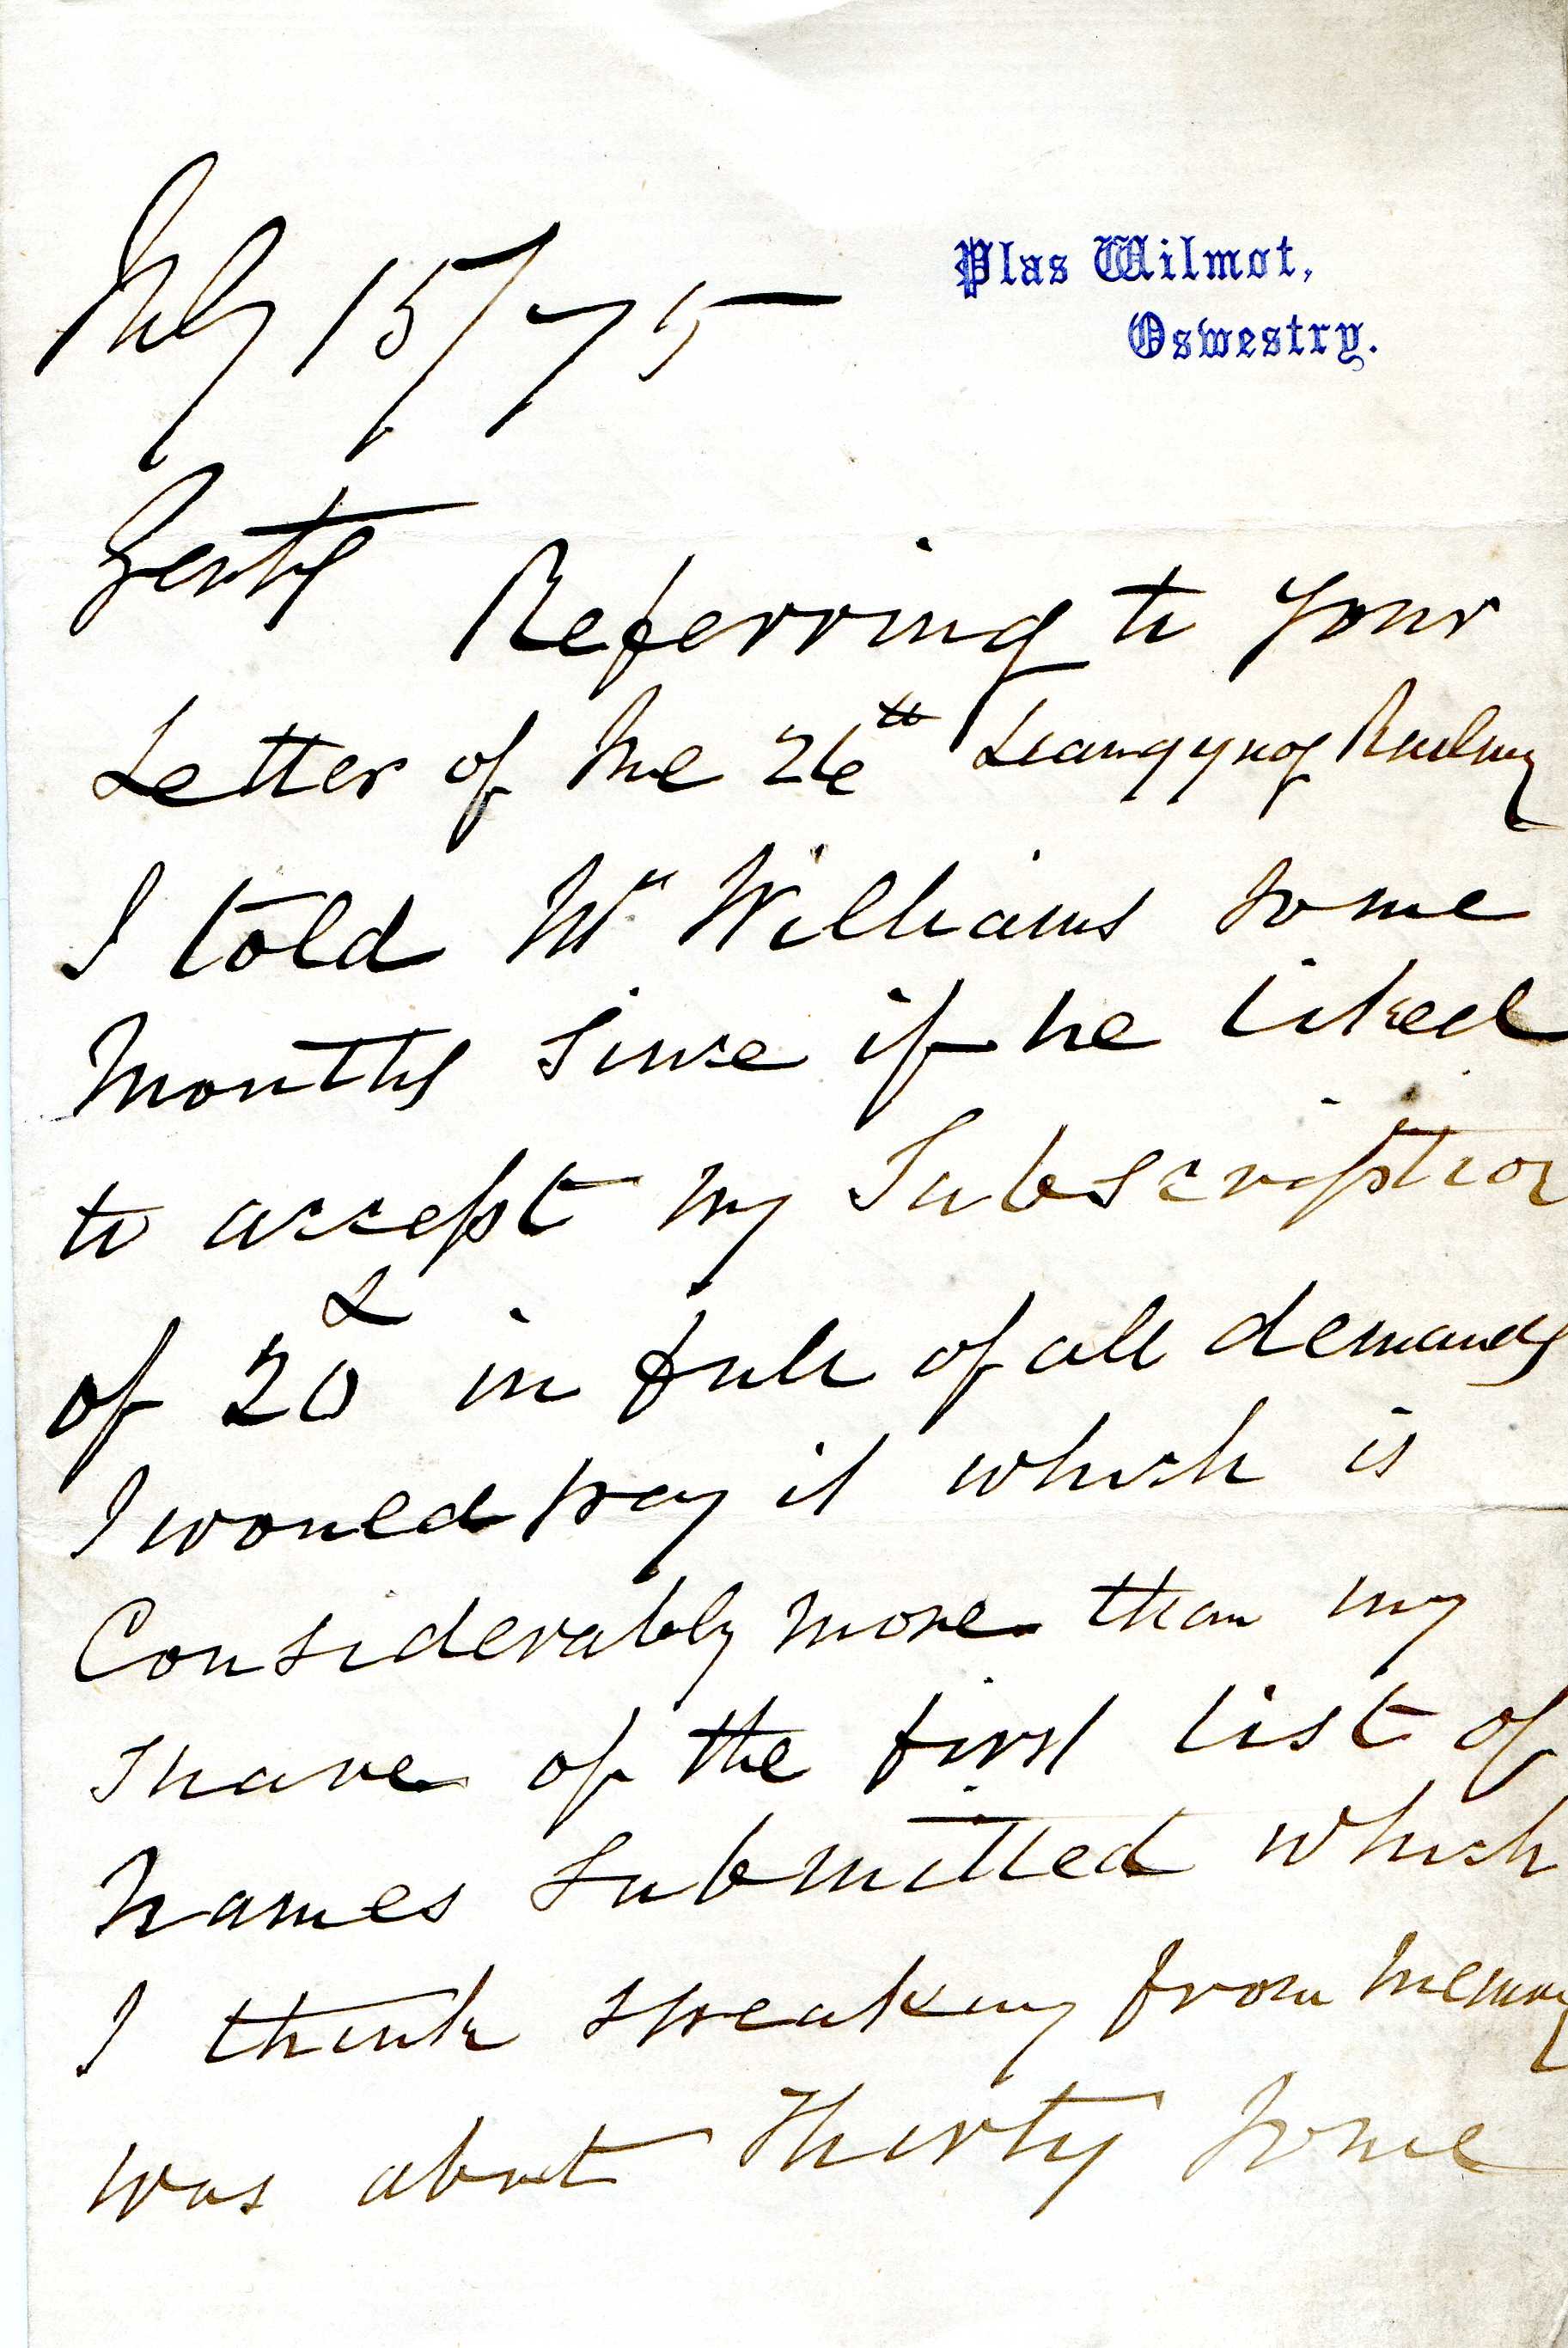 Plas Wilmot,
Oswestry.
July 15/75
Gents
Referring to your
Letter of the 26th Llangynog Railway
I told Mr Williams some
months since if he liked
to accept my Subscription
of 20£ in full of all demands
I would pay it which is
Considerably more than my
share of the first list of
names submitted which
I think speaking from memory
was about Thirty some